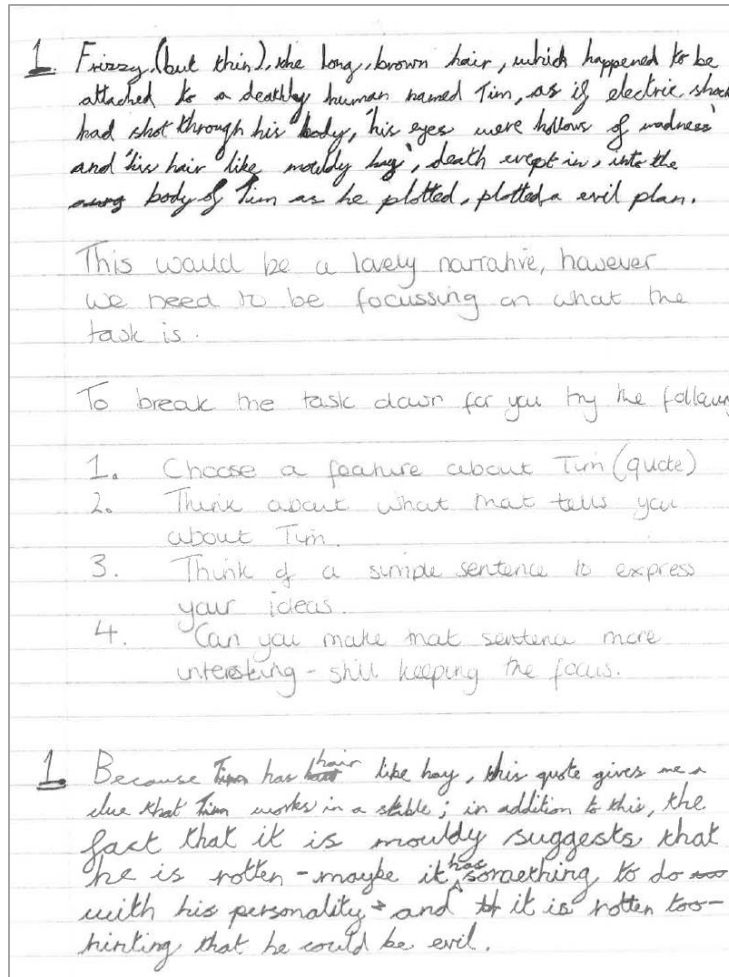 1. Frizzy, (but thin), the long, brown hair, which happened to be
attached to a deathly human named Tim, as if electric shock
had shot through his body, 'his eyes were hollows of madness'
and 'his hair like mouldy hay', death crept in, into the
body of Tim as he plotted, plotted a evil plan.
This would be a lovely narrative, however
we need to be focussing on what the
task is.
To break the task down for you try the following
1. Choose a feature about Tim (quote)
2. Think about what that tells you
about Tim.
3. Think of a simple sentence to express
your ideas.
4. Can you make that sentence more
interesting - still keeping the focus.
1 Because Tim has hair like hay, this quote gives me a
clue that Tim works in a stable; in addition to this, the
fact that it is mouldy suggests that
he is rotten - maybe it has something to do
with his personality - and it is rotten too -
hinting that he could be evil.